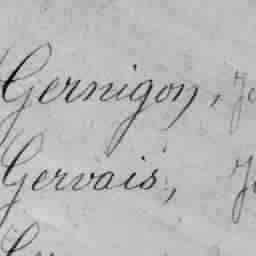 Gernigon,
Gervais,